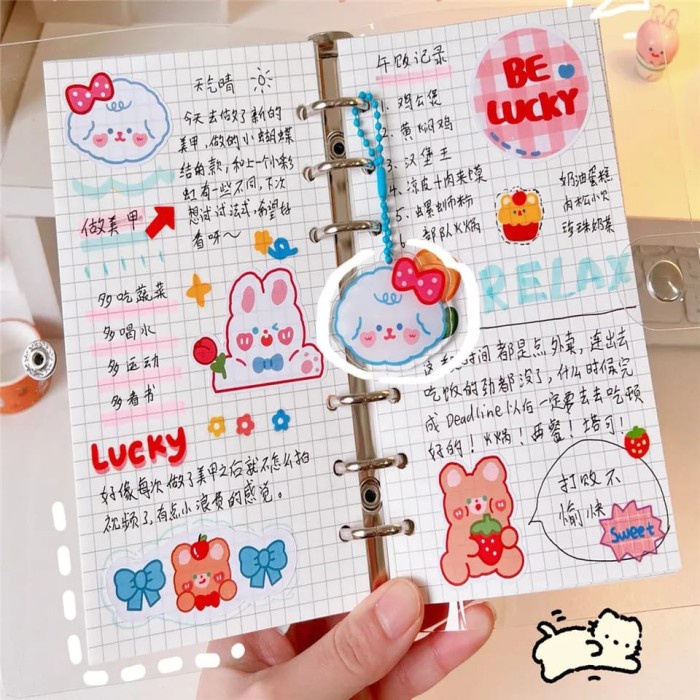 天气晴
今天去做了新的
美甲,做的小蝴蝶
结的款,和上个小彩
虹有一些不同,下次
想试试法式,希望好
看呀~
做美甲
多吃蔬菜
多喝水
多运动
多看书
LUCKY
好像每次做了美甲之后就不怎么拍
视频了,有点小浪费的感觉。
午饭记录
1. 鸡公煲
2. 黄焖鸡
3. 汉堡王
4. 凉皮+肉夹馍
5. 螺蛳粉
6. 部队火锅
BE
LUCKY
奶油蛋糕
肉松小贝
珍珠奶茶
RELAX
时间都是点外卖,连出去
吃饭的劲都没了,什么时候完
成Deadline以后一定要去吃顿
好的!火锅!西餐!塔可!
打败不
愉快
Sweet